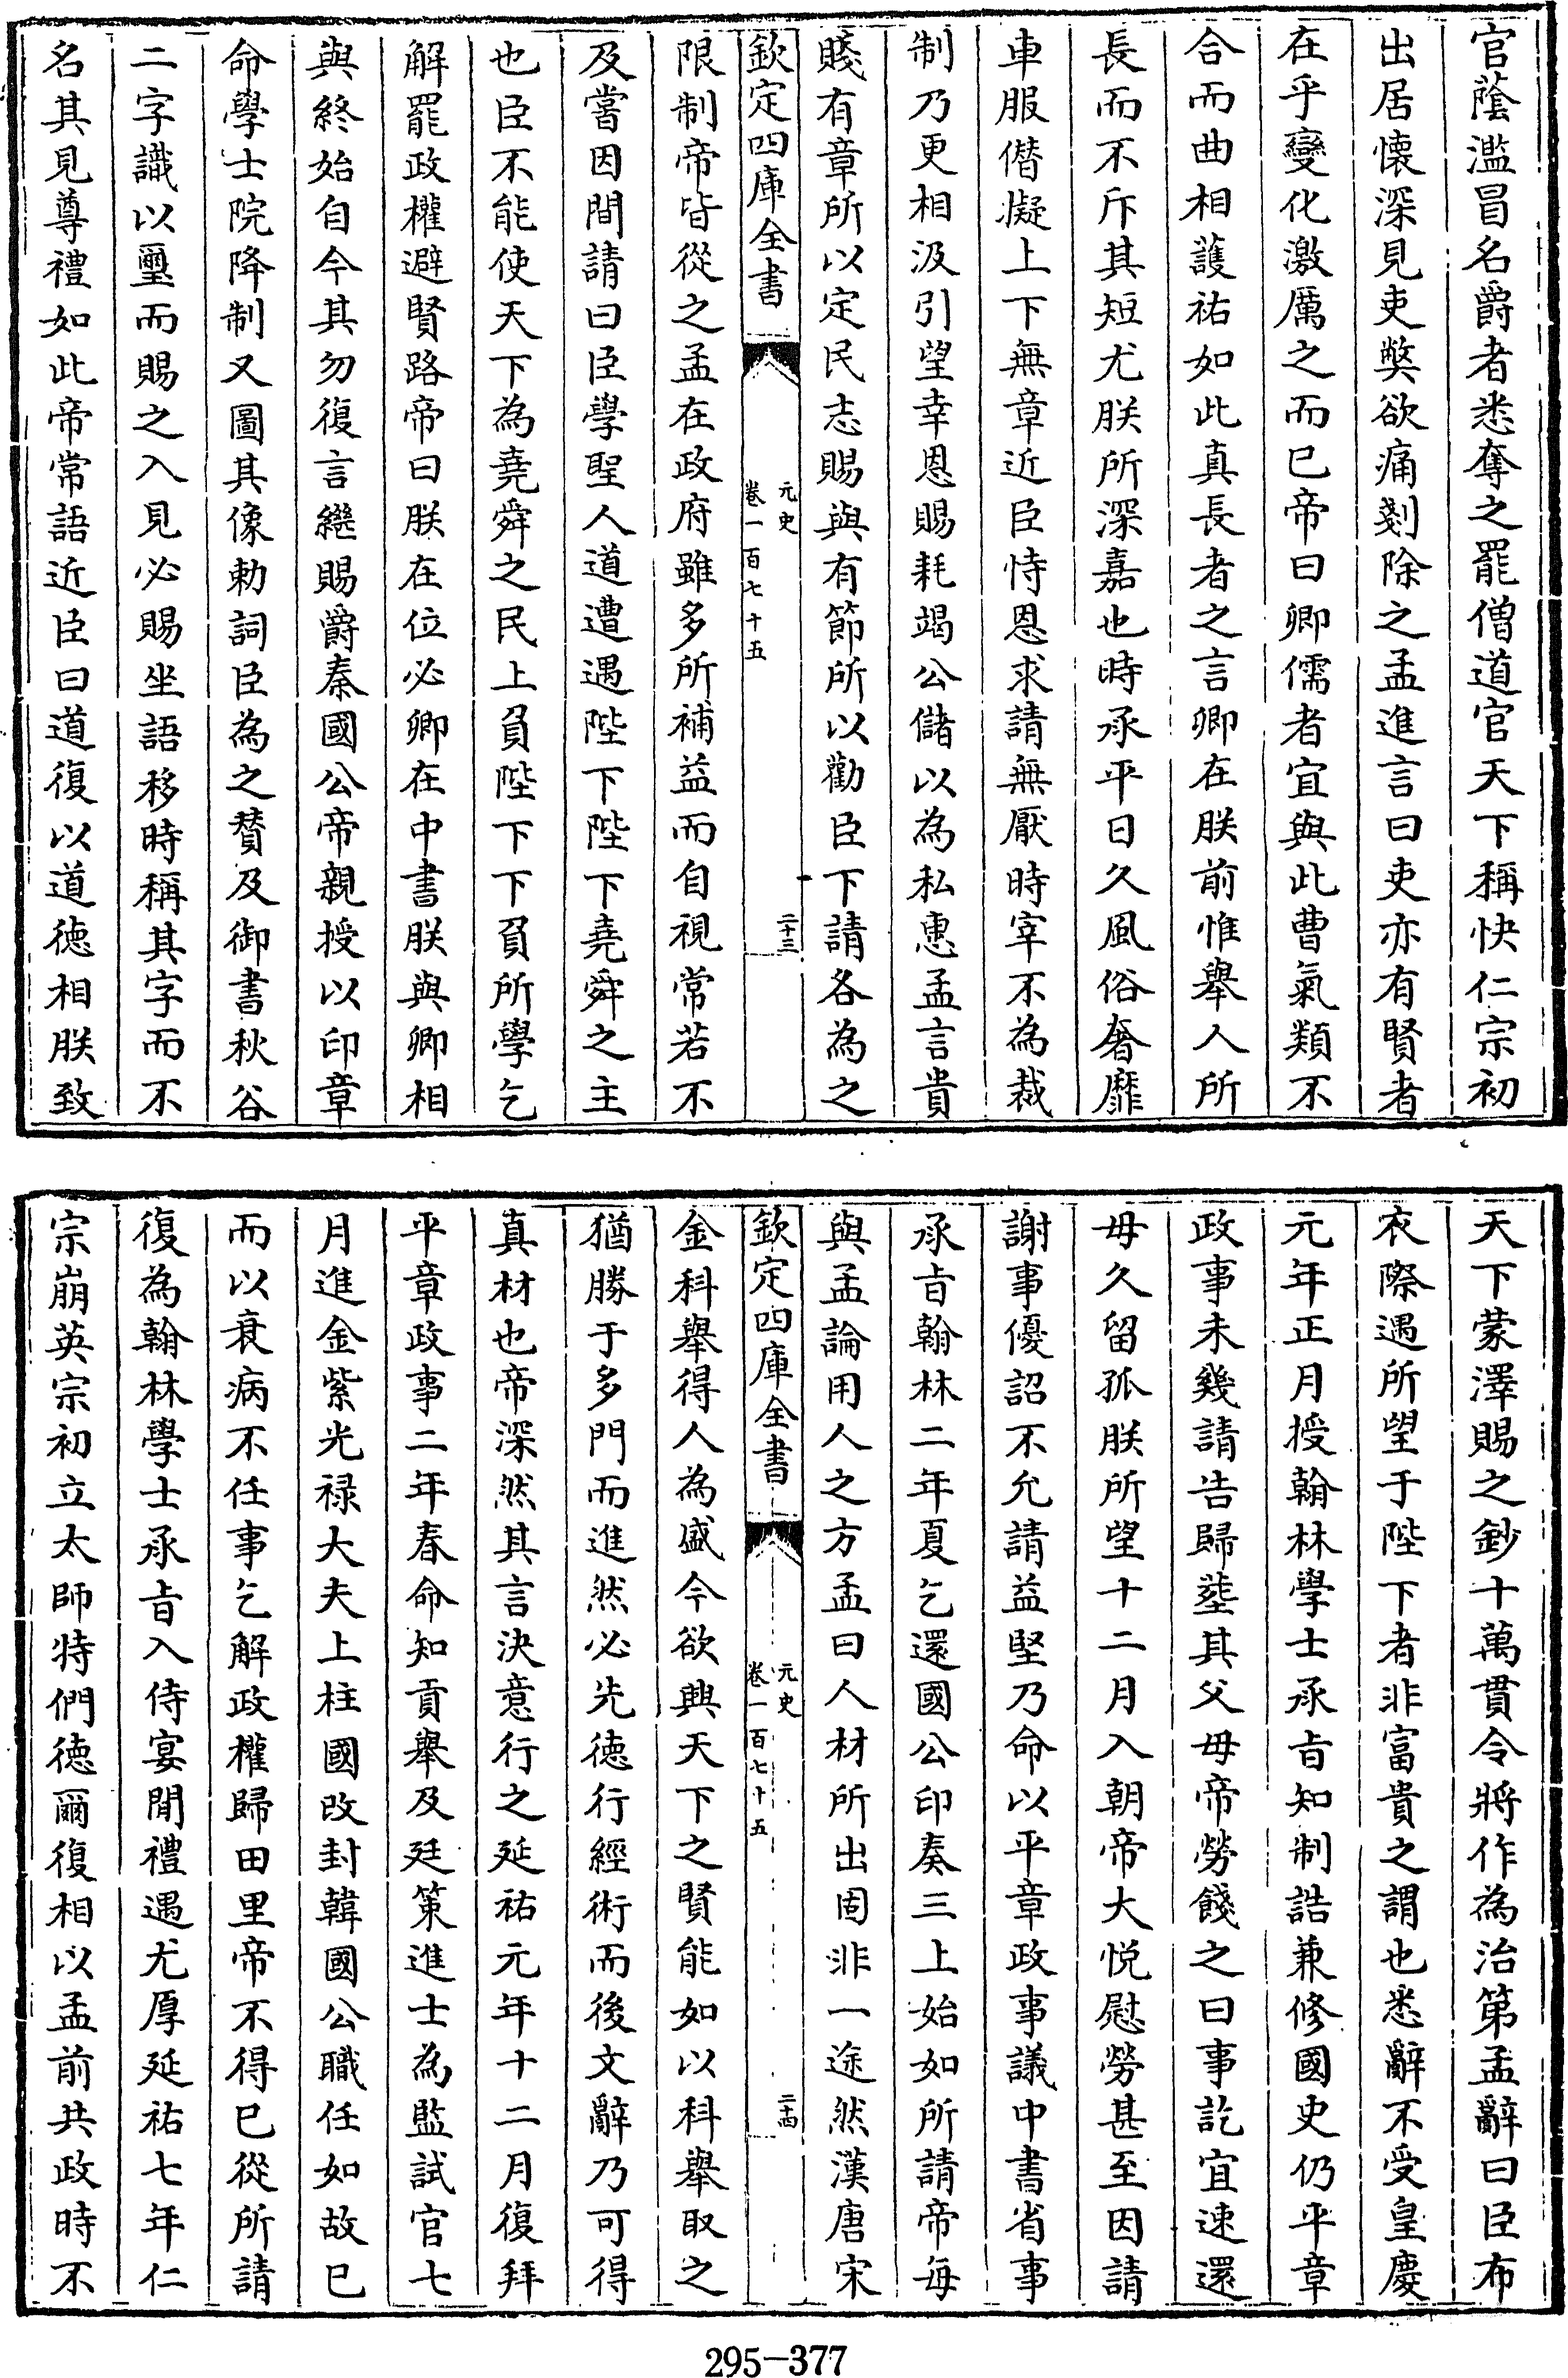 官蔭濫冒名爵者悉奪之罷僧道官天下稱快仁宗初
出居懐深見吏獘欲痛剗除之孟進言曰吏亦有賢者
在乎變化激厲之而已帝曰卿儒者宜與此曹氣類不
合而曲相護祐如此真長者之言卿在朕前惟舉人所
長而不斥其短尤朕所深嘉也時承平日久風俗奢靡
車服僭擬上下無章近臣恃恩求請無厭時宰不為裁
制乃更相汲引望幸恩賜耗竭公儲以為私惠孟言貴
賤有章所以定民志賜與有節所以勸臣下請各為之
欽定四庫全書
元史
卷一百七十五
二十三
限制帝皆從之孟在政府雖多所補益而自視常若不
及嘗因間請曰臣學聖人道遭遇陛下陛下堯舜之主
也臣不能使天下為堯舜之民上負陛下下負所學乞
解罷政權避賢路帝曰朕在位必卿在中書朕與卿相
與終始自今其勿復言繼賜爵秦國公帝親授以印章
命學士院降制又圖其像勅詞臣為之賛及御書秋谷
二字識以璽而賜之入見必賜坐語移時稱其字而不
名其見尊禮如此帝常語近臣曰道復以道徳相朕致
天下蒙澤賜之鈔十萬貫令將作為治第孟辭曰臣布
衣際遇所望于陛下者非富貴之謂也悉辭不受皇慶
元年正月授翰林學士承㫖知制誥兼修國史仍平章
政事未幾請告歸塟其父母帝勞餞之曰事訖宜速還
毋久留孤朕所望十二月入朝帝大悅慰勞甚至因請
謝事優詔不允請益堅乃命以平章政事議中書省事
承㫖翰林二年夏乞還國公印奏三上始如所請帝每
與孟論用人之方孟曰人材所出固非一途然漢唐宋
欽定四庫全書
元史
卷一百七十五
二十四
金科舉得人為盛今欲興天下之賢能如以科舉取之
猶勝于多門而進然必先徳行經術而後文辭乃可得
真材也帝深然其言決意行之延祐元年十二月復拜
平章政事二年春命知貢舉及廷策進士為監試官七
月進金紫光祿大夫上柱國改封韓國公職任如故已
而以衰病不任事乞解政權歸田里帝不得已從所請
復為翰林學士承㫖入侍宴閒禮遇尤厚延祐七年仁
宗崩英宗初立太師特們徳爾復相以孟前共政時不
295-377